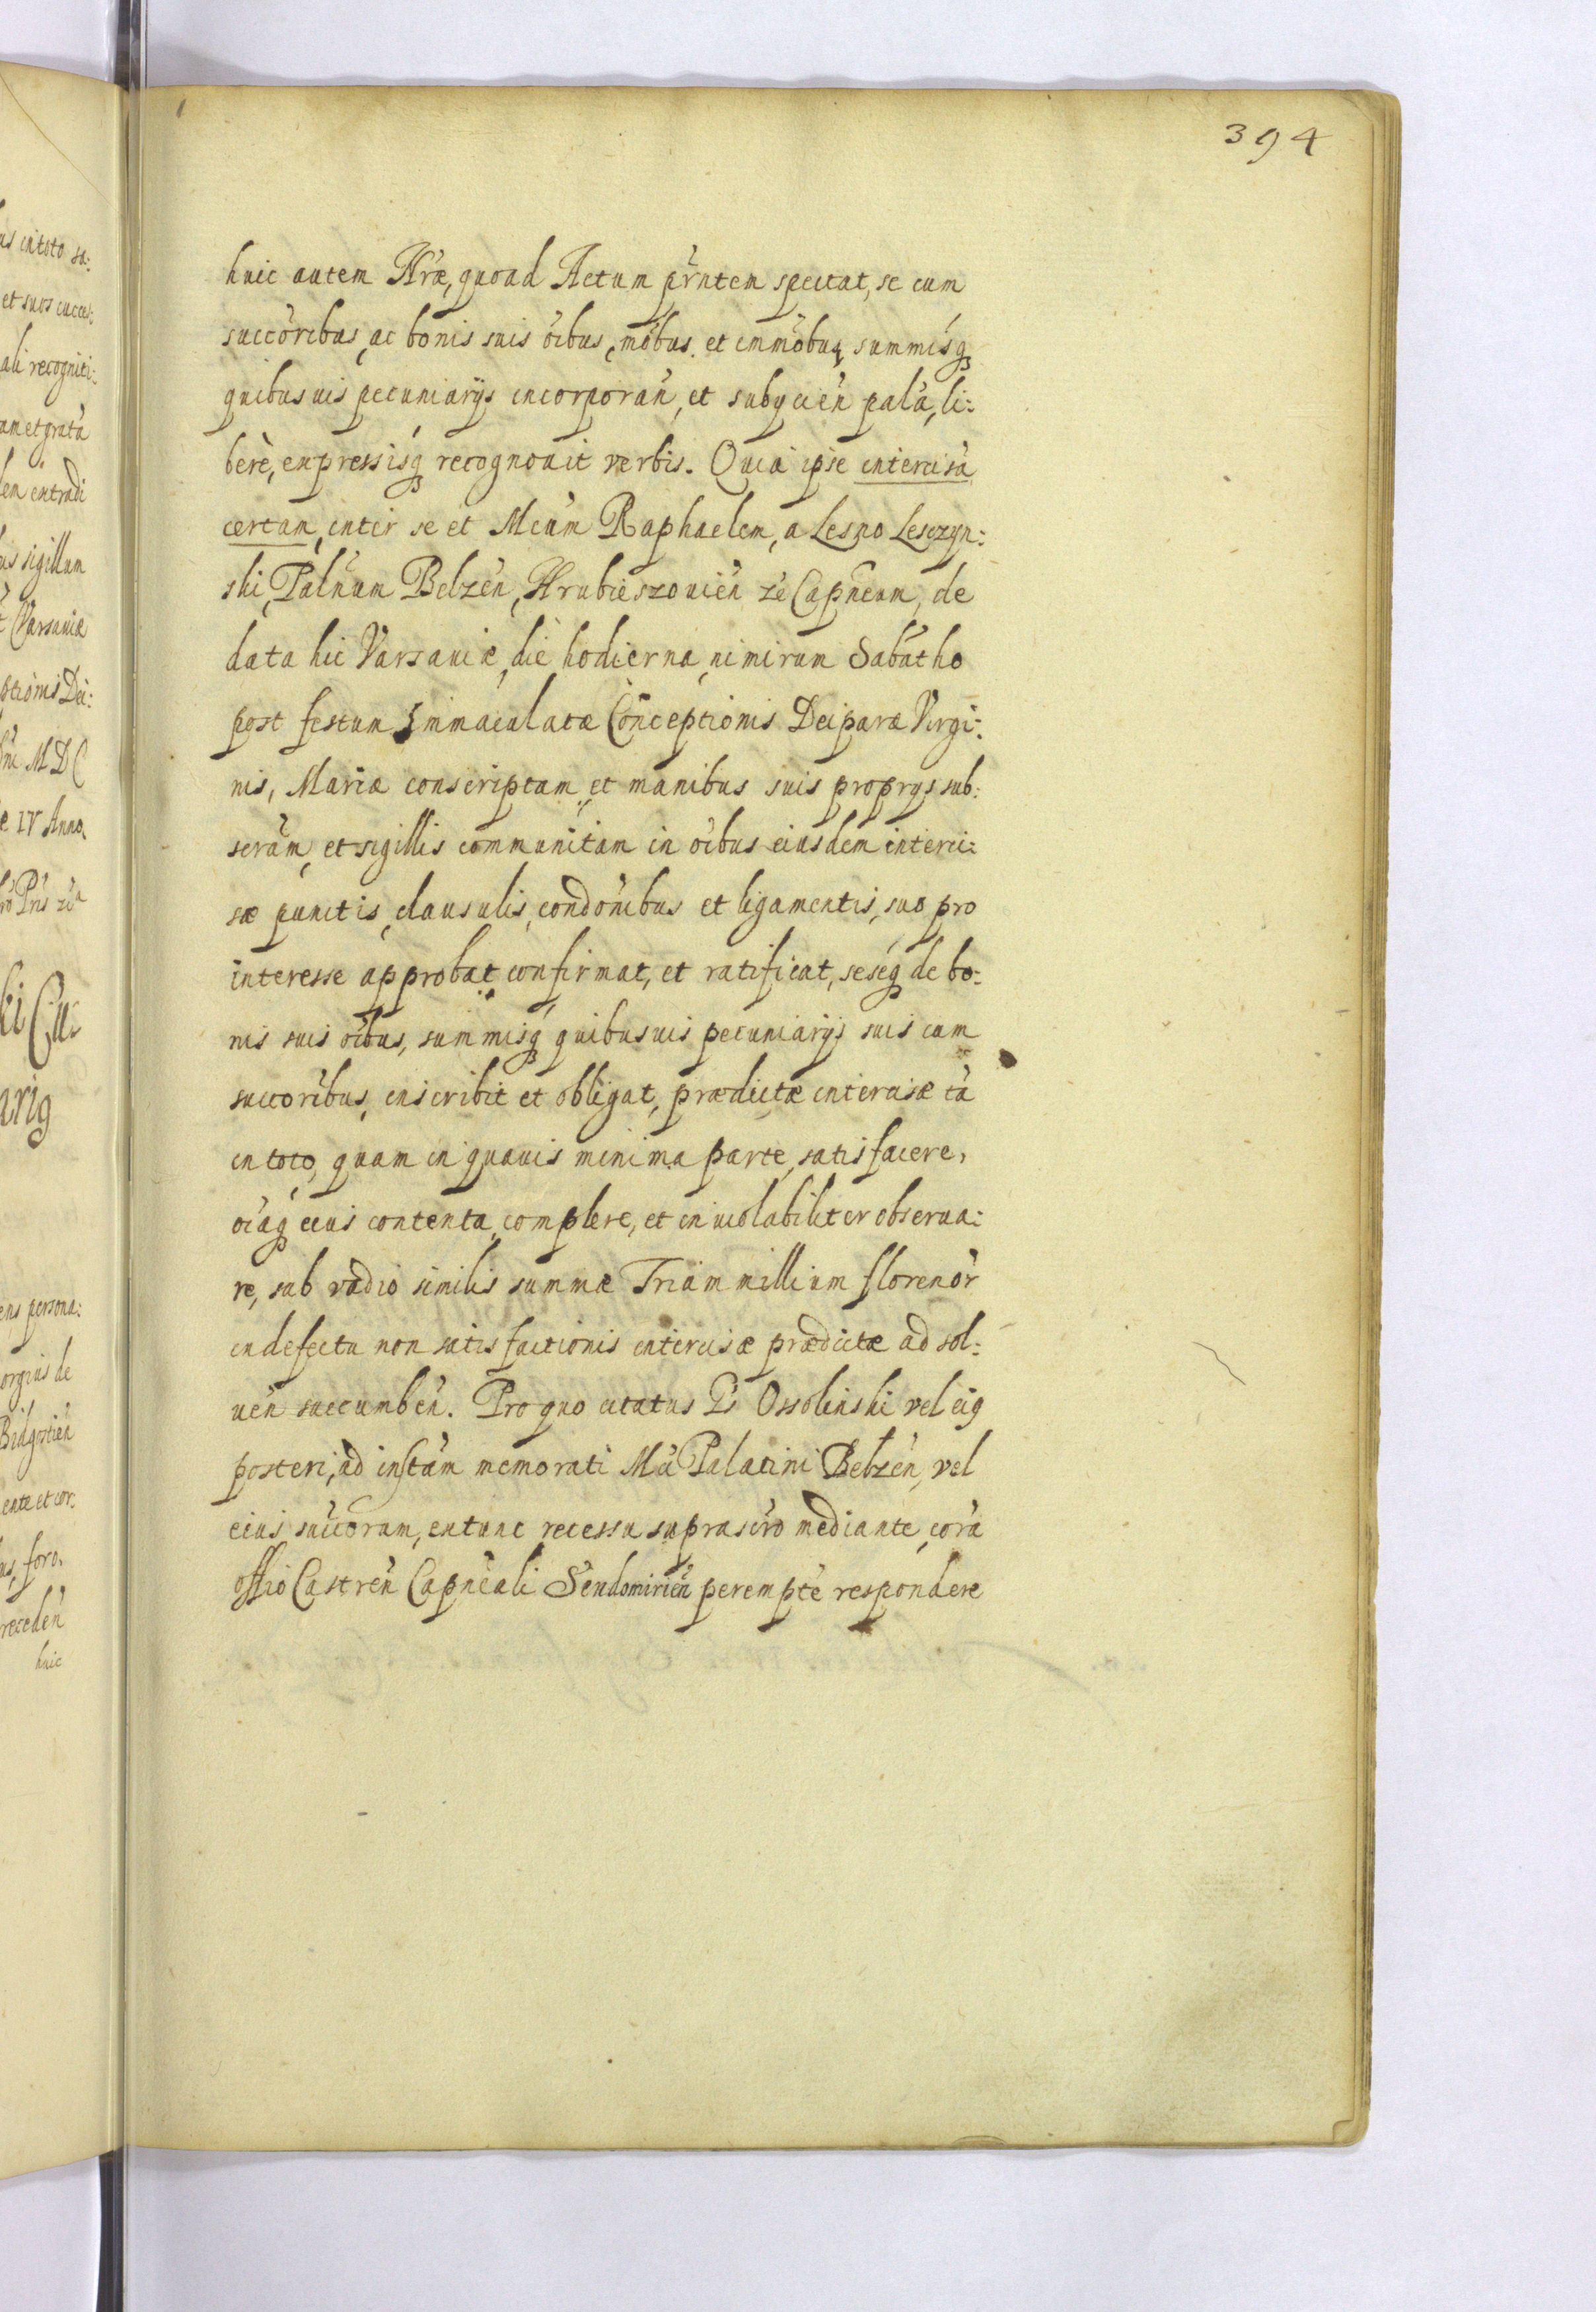 394
huic autem Nrae, quoad Actum prntem spectat, se cum
succoribus, ac bonis suis oibus, mobus. et immobus, summisq
quibusuis pecuniarijs incorporan, et subycien pala, li:
bere, expressisq recognouit verbis. Quia ipse intercisa
certam, inter se et Mcum Raphaelem, a Lesno Lesczyn:
ski, Palnum Belzen, Hrubieszouien zc Capneum, de
data hic Varsauiæ, die hodierna, nimirum Sabatho
post festum Immaculatæ Conceptionis Deiparæ Virgi:
nis, Mariæ conscriptam, et manibus suis proprys sub:
scram, et sigillis communitam in oibus eiusdem interci:
sæ punctis, clausulis, condonibus et ligamentis, suo pro
interesse approbat, confirmat, et ratificat, seseq de bo:
nis suis oibus, summisq quibusuis pecuniarijs suis cum
succoribus, inscribit et obligat, prædictæ intercisæ ta
in toto, quam in quauis minima parte, satisfacere,
oiaq eius contenta, complere, et inuiolabiliter obserua:
re, sub vadio similis summæ Trium millium florenor
in defectu non satisfactionis intercisæ prædictæ ad sol:
uen succumben. Pro quo citatus Ds Ossolinski vel eig
posteri, ad instam memorati Mci Palatini Belzen, vel
eius succorum, extunc recessu suprascro mediante, cora
offio Castren Capneali Sendomirien perempte respondere
us in toto sa:
et suos succes:
ali recogniti:
am et grata
us sigillum
Varsauiæ
ptionis Dei:
M D C
IV Anno
ens persona:
orgius de
Bidgostien
ente et cor:
us, foro,
receden
huic